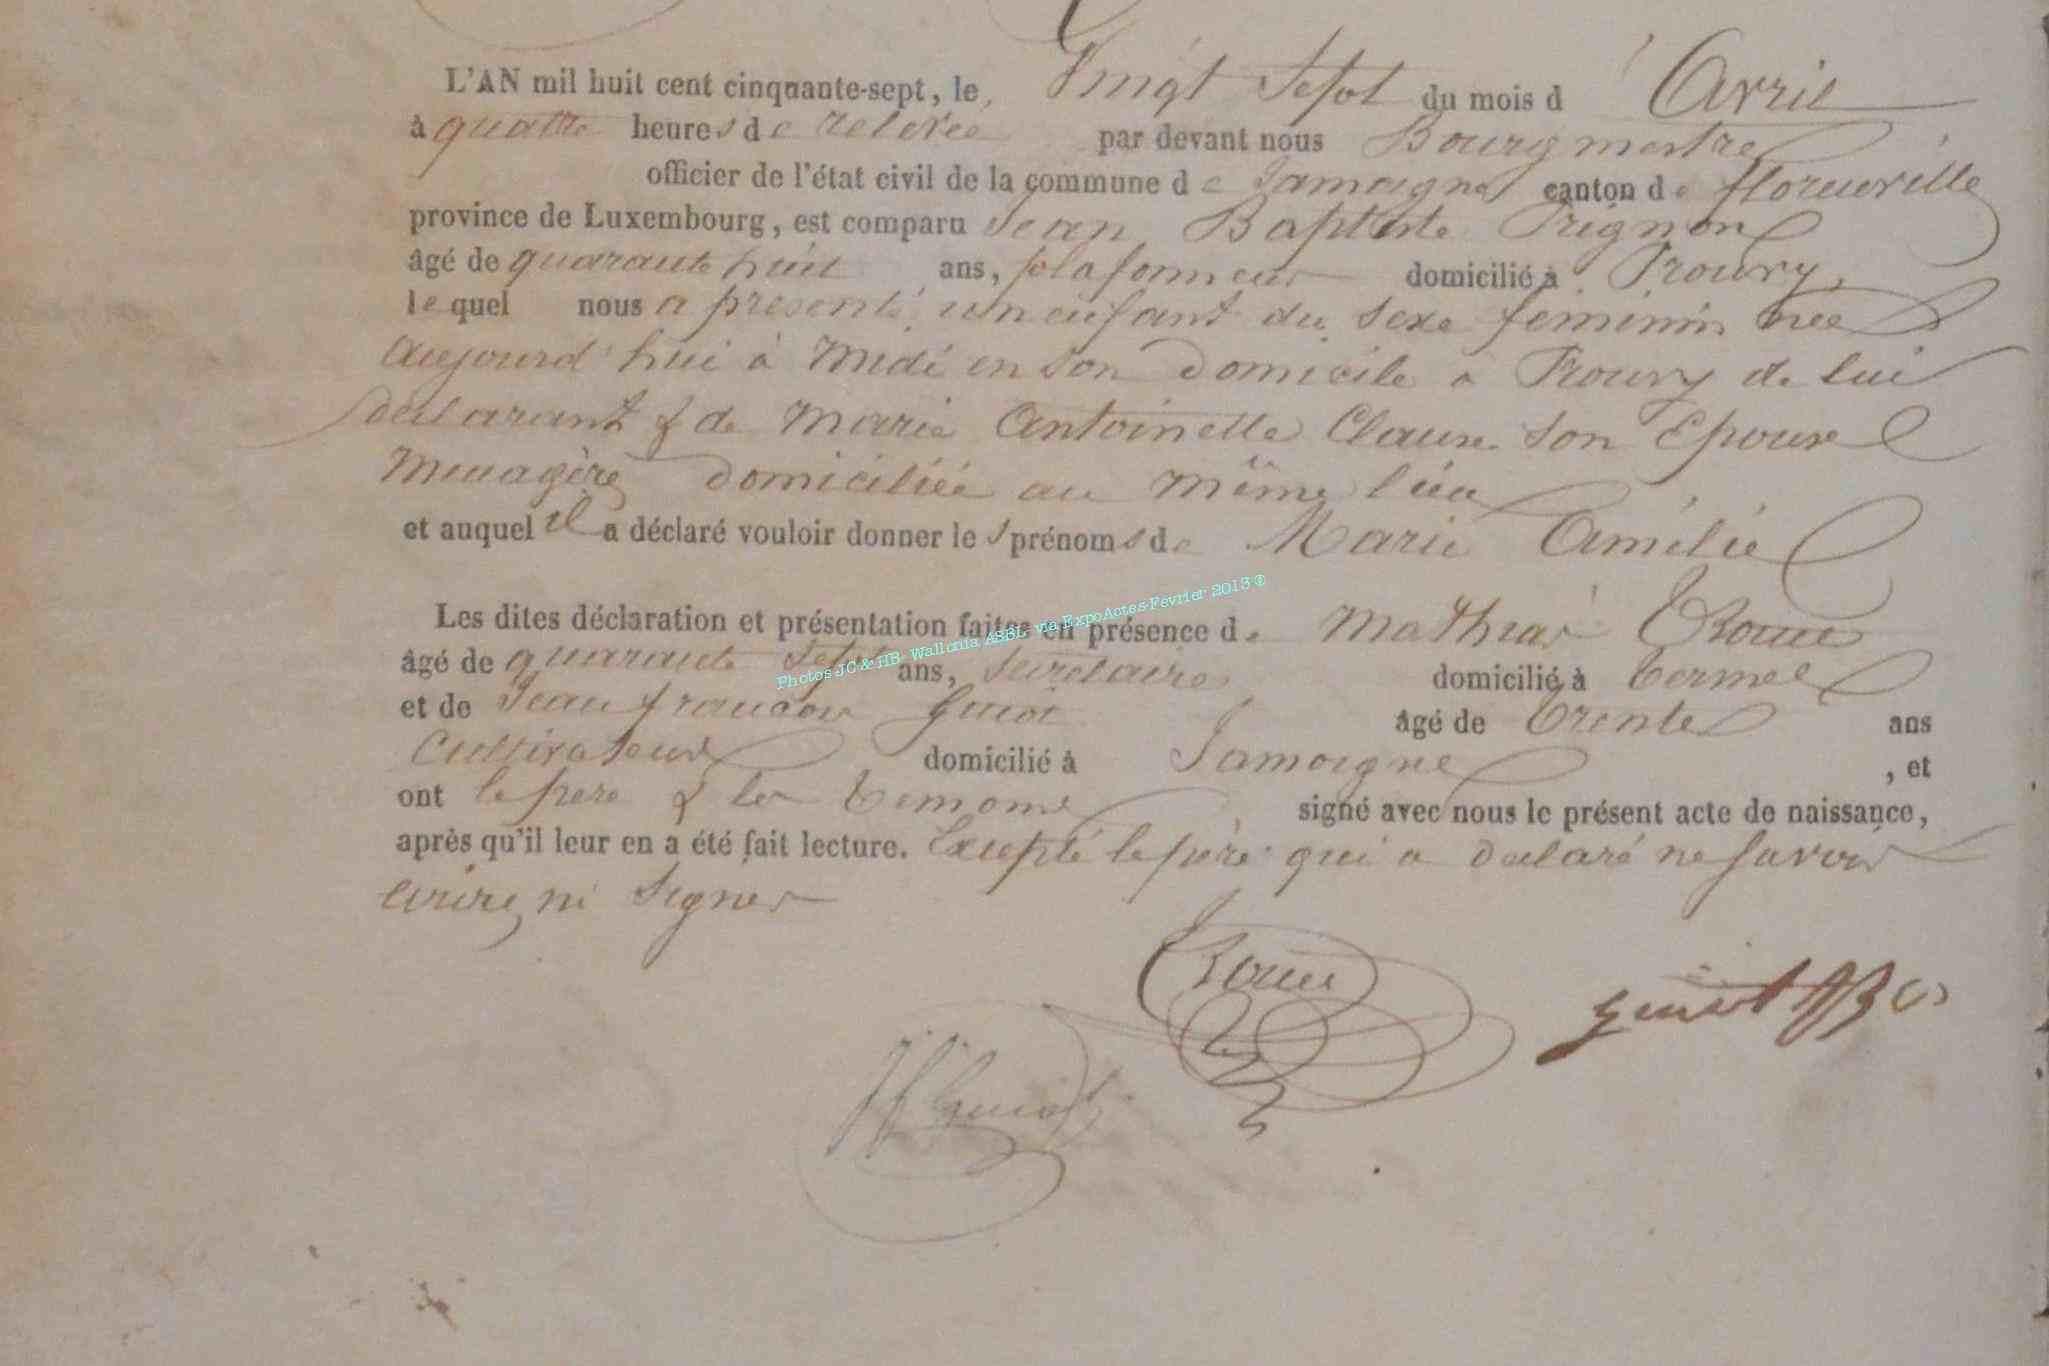 L'AN mil huit cent cinquante-sept, le, Vingt Sept du mois d'Avril
à quatre heures de relevée par devant nous Bourgmestre
officier de l'état civil de la commune de Jamoigne canton de florenville
province de Luxembourg, est comparu Jean Baptiste Trignon
âgé de quarante huit ans, plafonneur domicilié à Prouvy,
lequel nous a présenté un enfant du sexe féminin née
aujourd'hui à midi en son domicile à Prouvy de lui
déclarant & de Marie Antoinette Clause son Epouse
Menagère domiciliée au même lieu
et auquel il a déclaré vouloir donner les prénoms de Marie Amélie
Les dites déclaration et présentation faites en présence de Mathias
âgé de quarante sept ans, Secrétaire domicilié à Termes
et de Jean françois Guiot âgé de trente ans
Cultivateur domicilié à Jamoigne , et
ont le père & les temoins signé avec nous le présent acte de naissance,
après qu'il leur en a été fait lecture. Excepté le père qui a declaré ne savoir
écrire ni signer
JF Guiot
Guiot
Photos JC & HB Wallonia ASBL via ExpoActes-Février 2013 ©